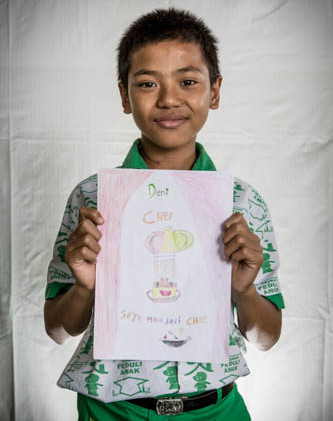 Deni
CHEF
SAYA MAU JADI CHEF
PEDULI
ANAK
PEDULI
ANAK